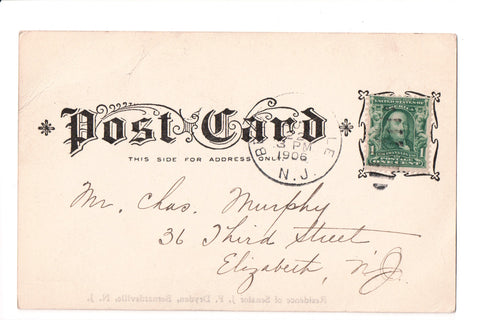 Post Card
THIS SIDE FOR ADDRESS ONLY
3 PM
1906
N. J.
UNITED STATES OF AMERICA
POSTAGE
ONE CENT
Mr. Chas. Murphy
36 Third Street
Elizabeth, N.J.
Residence of Senator J. F. Dryden, Bernardsville, N. J.